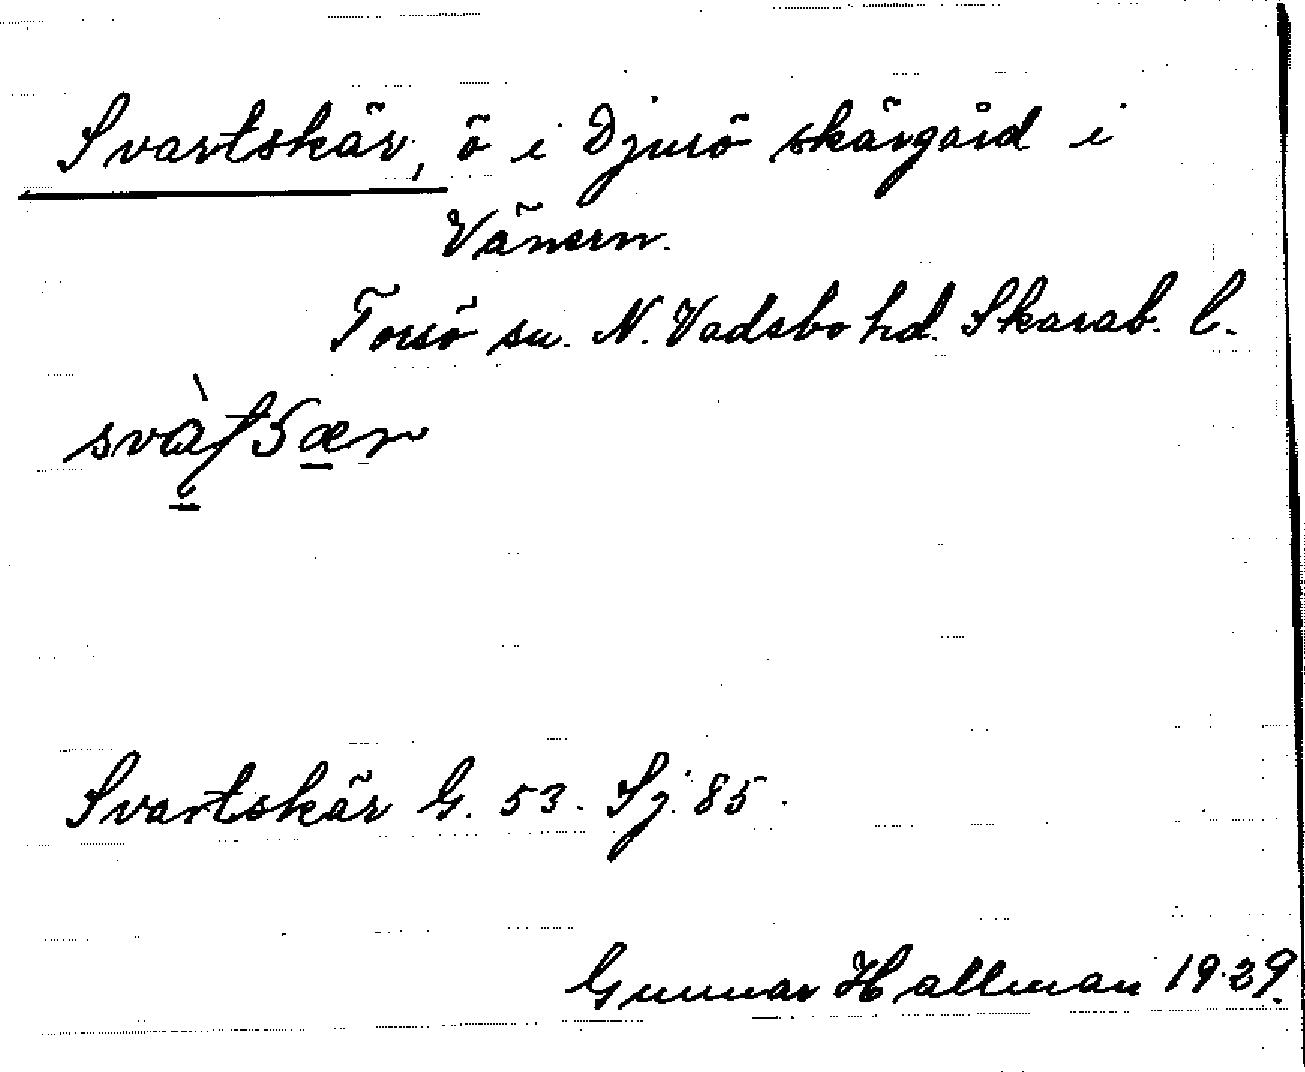 Svartskär, ö i Djurö skärgård i
Vänern.
Torsö sn. N. Vadsbo hd. Skarab. l.
Svartskär G. 53. Sj. 85.
Gunnar Hallman 1929.